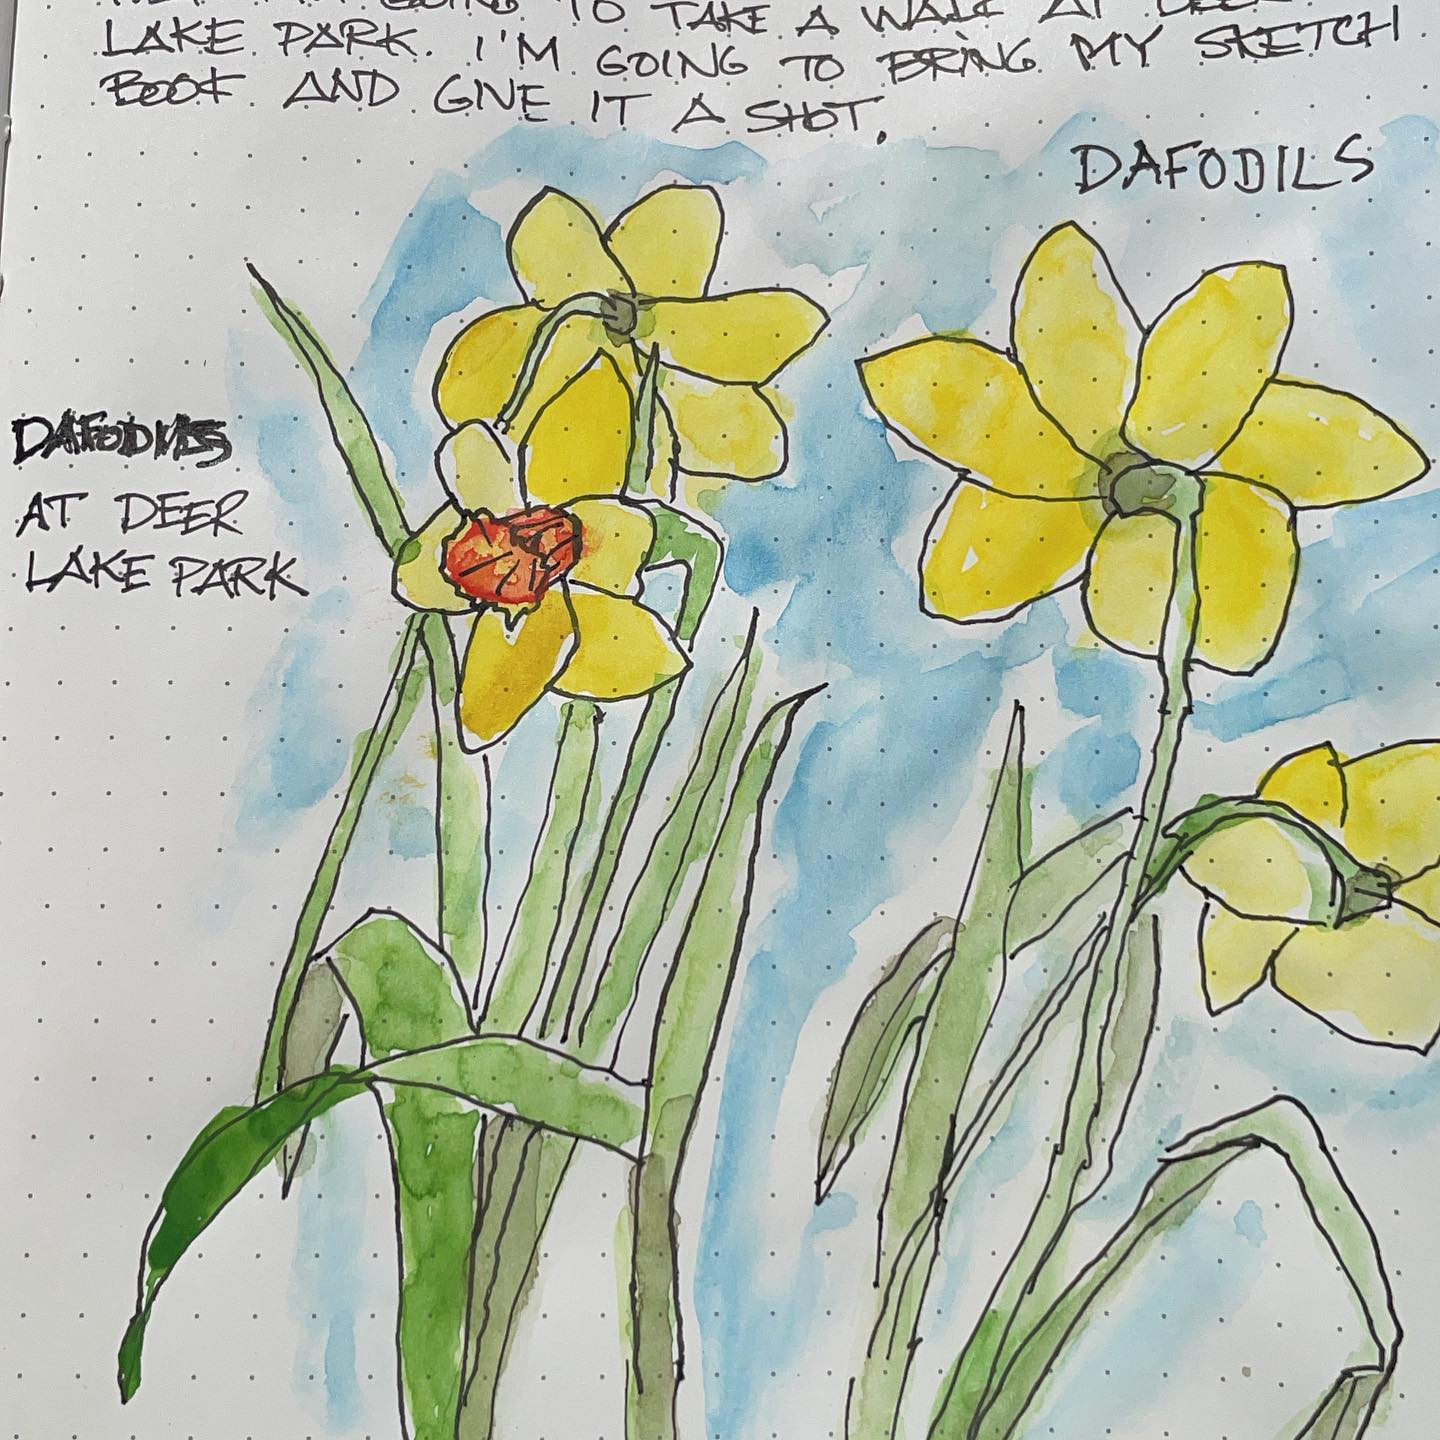 GOING TO TAKE A WALK AT DEER
LAKE PARK. I'M GOING TO BRING MY SKETCH
BOOK AND GIVE IT A SHOT.
DAFODILS
DAFODILS
AT DEER
LAKE PARK